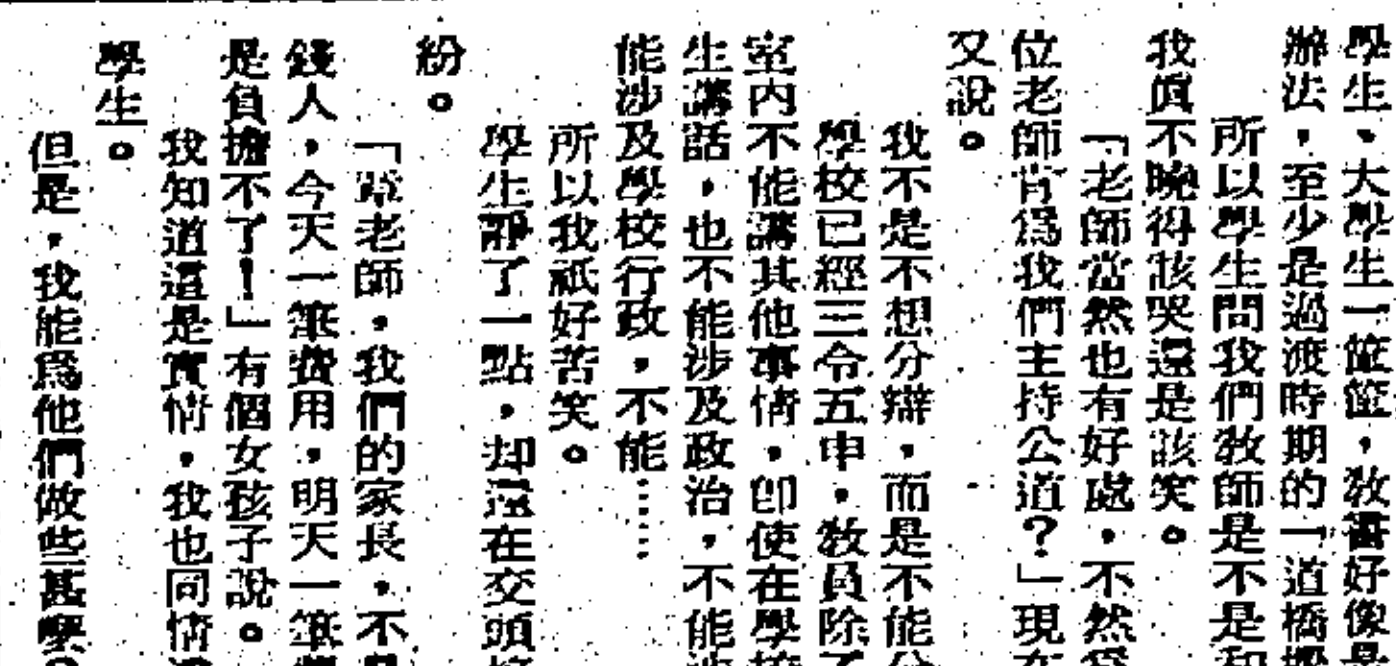 學生、大學生一籮籮，教書好像是
辦法，至少是過渡時期的「道橋樑
所以學生問我們教師是不是和
我眞不曉得該哭還是該笑。
「老師當然也有好處，不然爲
位老師肯爲我們主持公道？」現在
又說。
我不是不想分辯，而是不能分
學校已經三令五申，教員除了
室內不能講其他事情，卽使在學校
生講話，也不能涉及政治，不能涉
能涉及學校行政，不能……
所以我祇好苦笑。
學生靜了一點，却還在交頭接
紛。
「覃老師，我們的家長，不是
錢人，今天一筆費用，明天一筆費
是負擔不了！」有個女孩子說。
我知道這是實情，我也同情這
學生。
但是，我能爲他們做些甚麼？